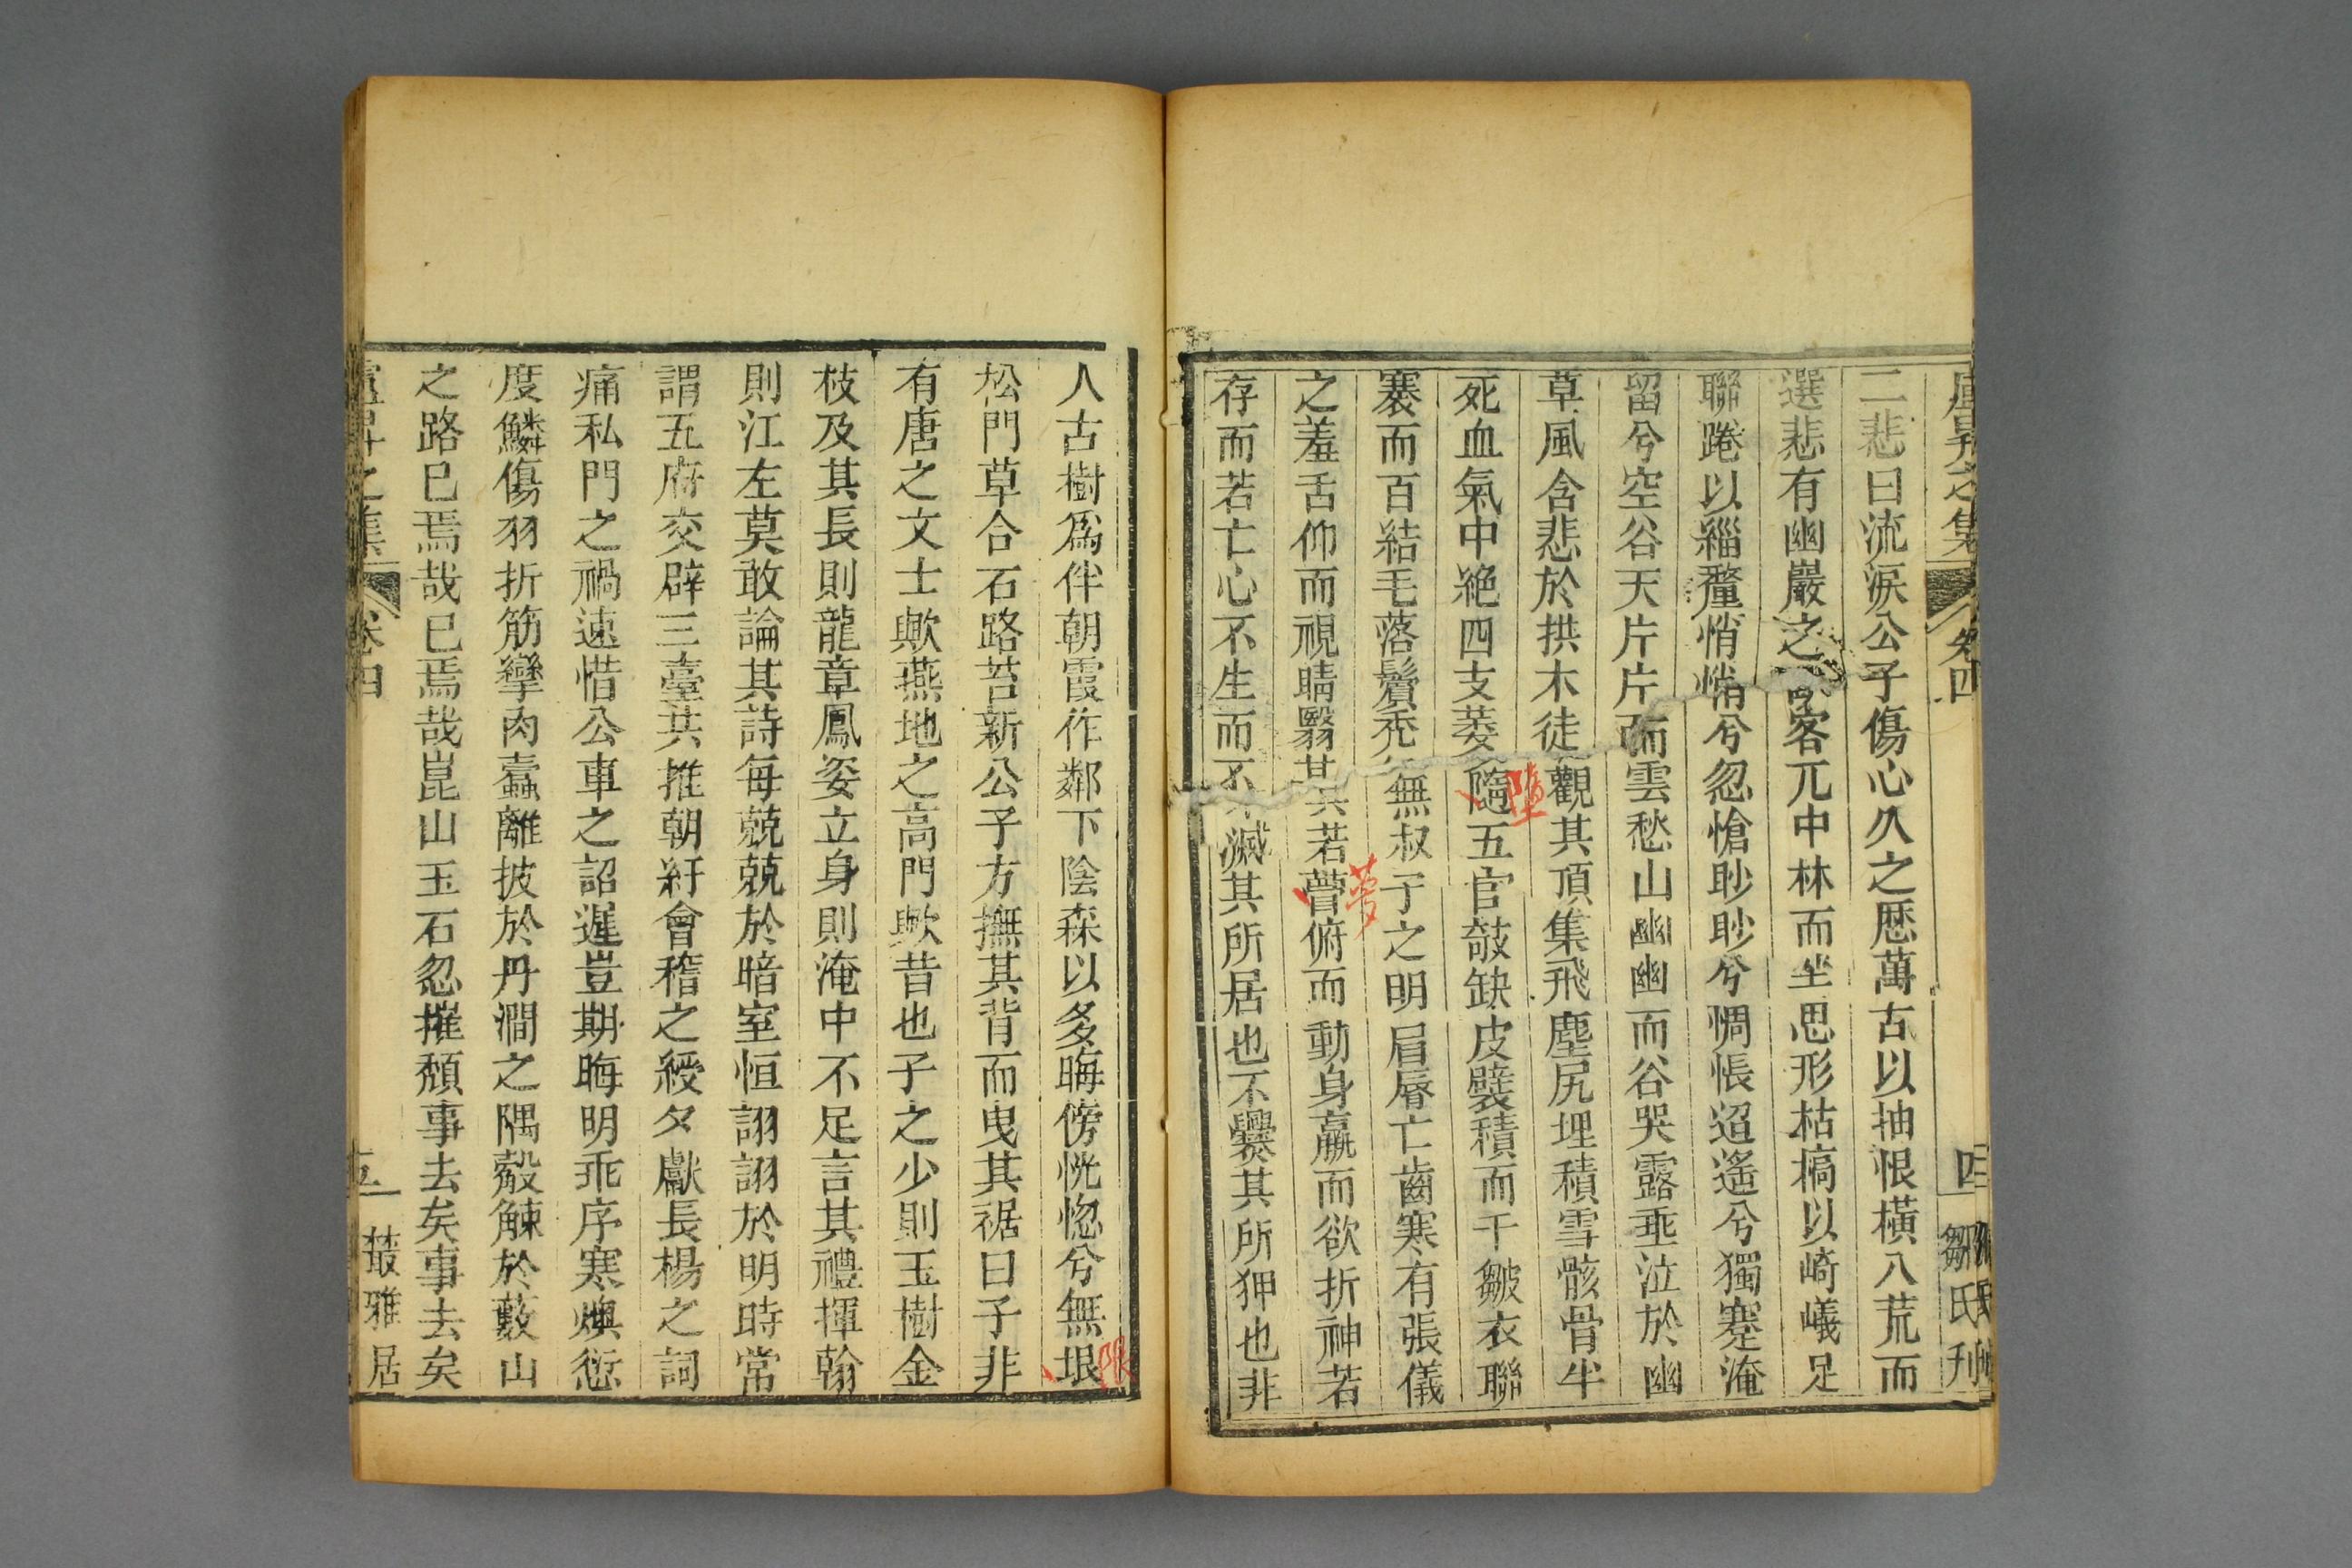 盧昇之集 卷四 四 鄒氏刊
二悲曰流淚公子傷心久之歷萬古以抽恨橫八荒而
選悲有幽巖之臥客兀中林而坐思形枯槁以崎嶬足
聯踡以緇釐悄悄兮忽愴眇眇兮惆悵迢遙兮獨蹇淹
留兮空谷天片片而雲愁山幽幽而谷哭露垂泣於幽
草風含悲於拱木徒觀其頂集飛塵尻埋積雪骸骨半
死血氣中絕四支萎隨五官欹缺皮襞積而千皺衣聯
墮
褰而百結毛落鬢禿無叔子之明眉脣亡齒寒有張儀
之羞舌仰而視睛翳其若瞢俯而動身羸而欲折神若
夢
存而若亡心不生而不滅其所居也不爨其所狎也非
人古樹爲伴朝霞作鄰下陰森以多晦傍恍惚兮無垠
限
松門草合石路苔新公子方撫其背而曳其裾曰子非
有唐之文士歟燕地之高門歟昔也子之少則玉樹金
枝及其長則龍章鳳姿立身則淹中不足言其禮揮翰
則江左莫敢論其詩每兢兢於暗室恒詡詡於明時常
謂五府交辟三臺共推朝紆會稽之綬夕獻長楊之詞
痛私門之禍速惜公車之詔遲豈期晦明乖序寒燠愆
度鱗傷羽折筋攣肉蠹離披於丹澗之隅觳觫於藪山
之路已焉哉已焉哉崑山玉石忽摧頹事去矣事去矣
盧昇之集 卷四 五 叢雅居